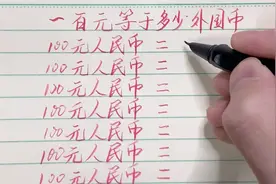 一百元等于多少外国币
100元人民币=
100元人民币=
100元人民币=
100元人民币=
100元人民币=
100元人民币=
100元人民币=